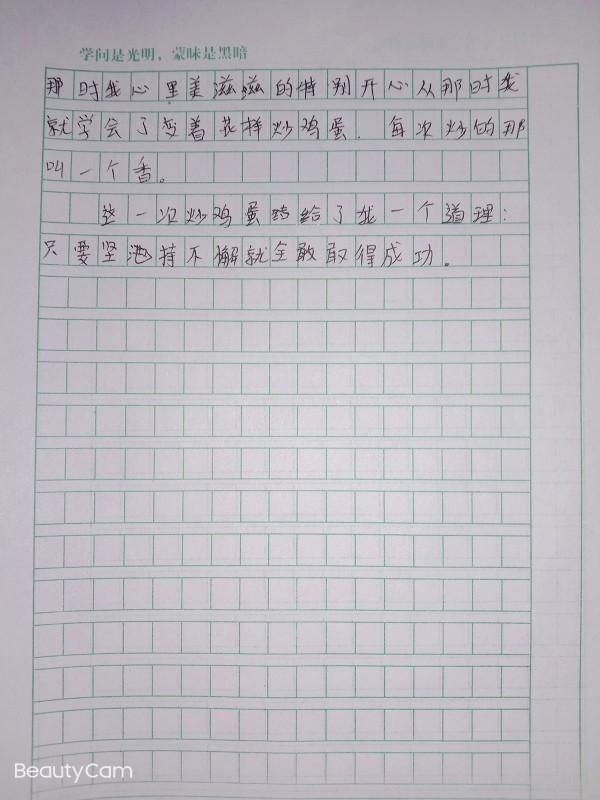 学问是光明，蒙昧是黑暗
那时我心里美滋滋的特别开心从那时我
就学会了变着花样炒鸡蛋. 每次炒的那
叫一个香。
一次炒鸡蛋给了我一个道理：
只要坚持不懈就全敢取得成功.
BeautyCam